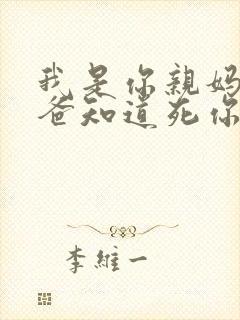 我是你親媽
爸知道死你
李維一